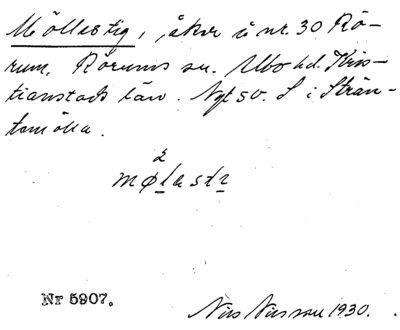 Möllestig, åker å nr. 30 Rö-
rum, Rörums sn. Albo hd. Kris-
tianstads län. Nyt sv. S i Strån-
temölla.
2
mølasti
Nr 5907.
Nils Nilsson 1930.